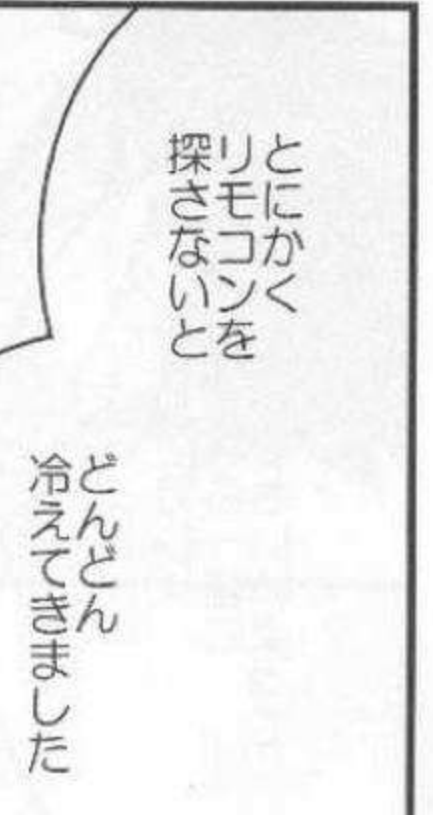 とにかく
リモコンを
探さないと
どんどん
冷えてきました